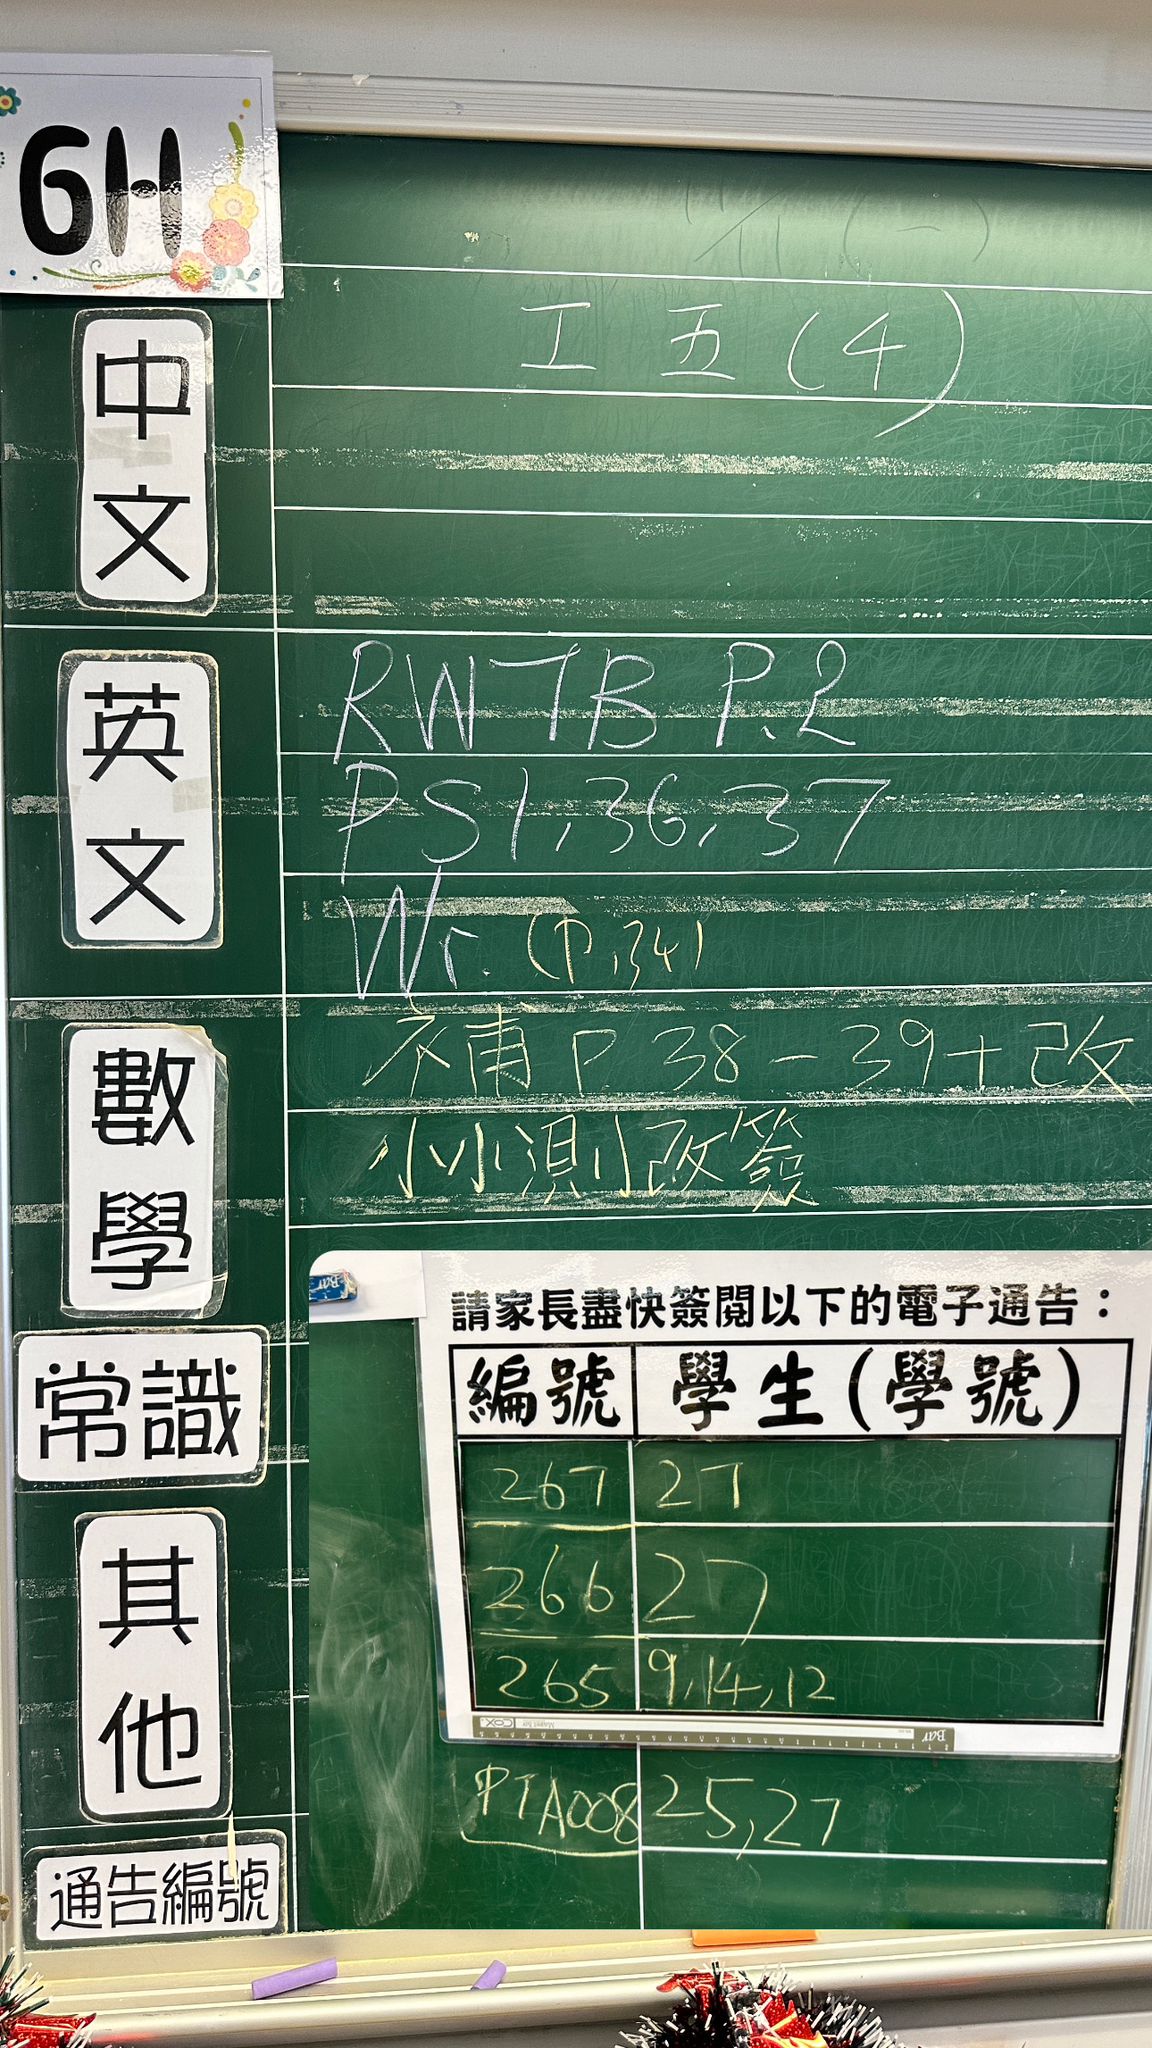 6H
中文
工 五 (4)
英文
RWTB P.2
PS1,36,37
Wr. (P.34)
數學
補 P 38-39+改
小小測改簽
常識
其他
通告編號
請家長盡快簽閱以下的電子通告：
編號 學生(學號)
267 27
266 27
265 9,14,12
PTA008 25,27